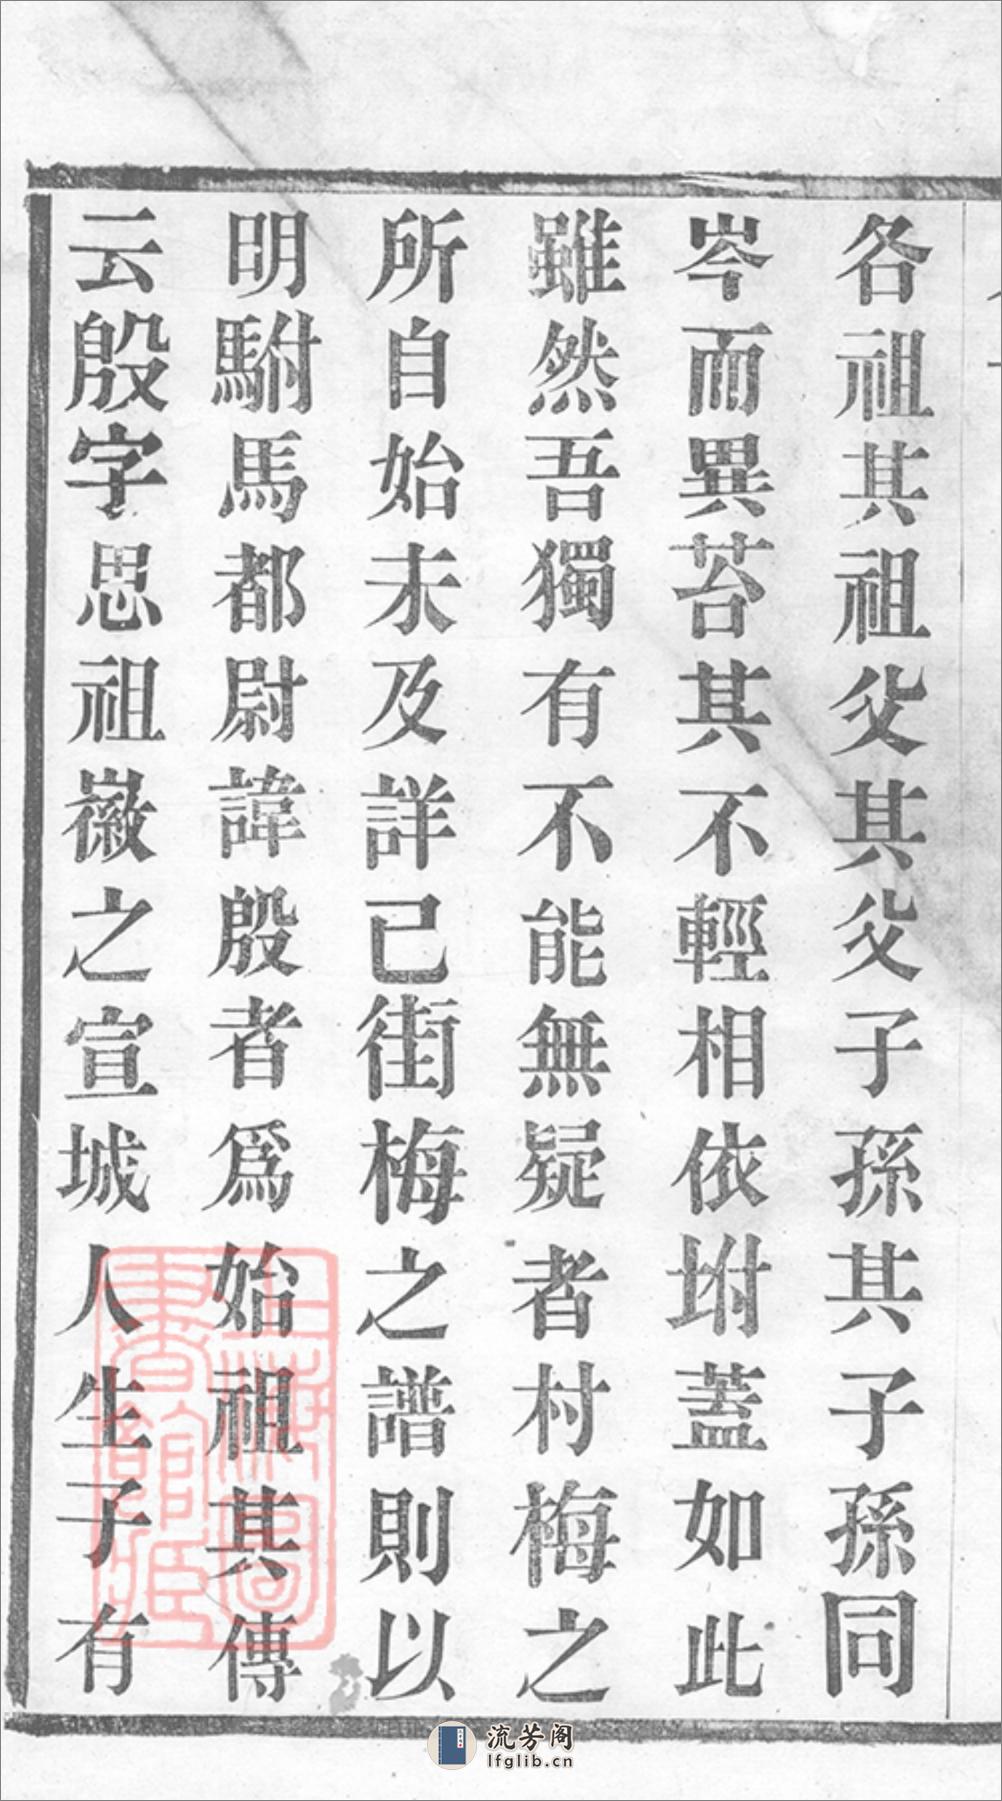 各祖其祖父其父子孫其子孫同
岑而異苔其不輕相依坿蓋如此
雖然吾獨有不能無疑者村梅之
所自始未及詳已街梅之譜則以
明駙馬都尉諱殷者爲始祖其傳
云殷字思祖徽之宣城人生子有
上海圖書館藏
流芳阁
lfglib.cn